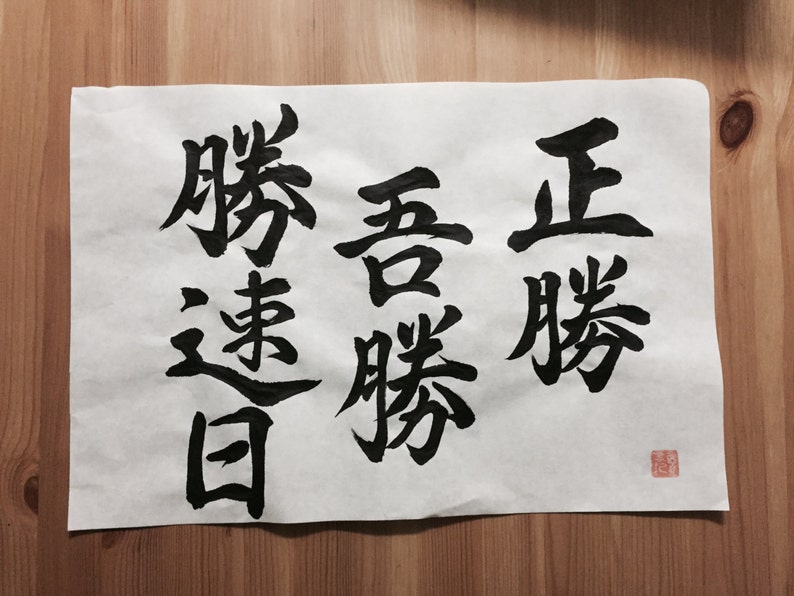 正勝
吾勝
勝速日